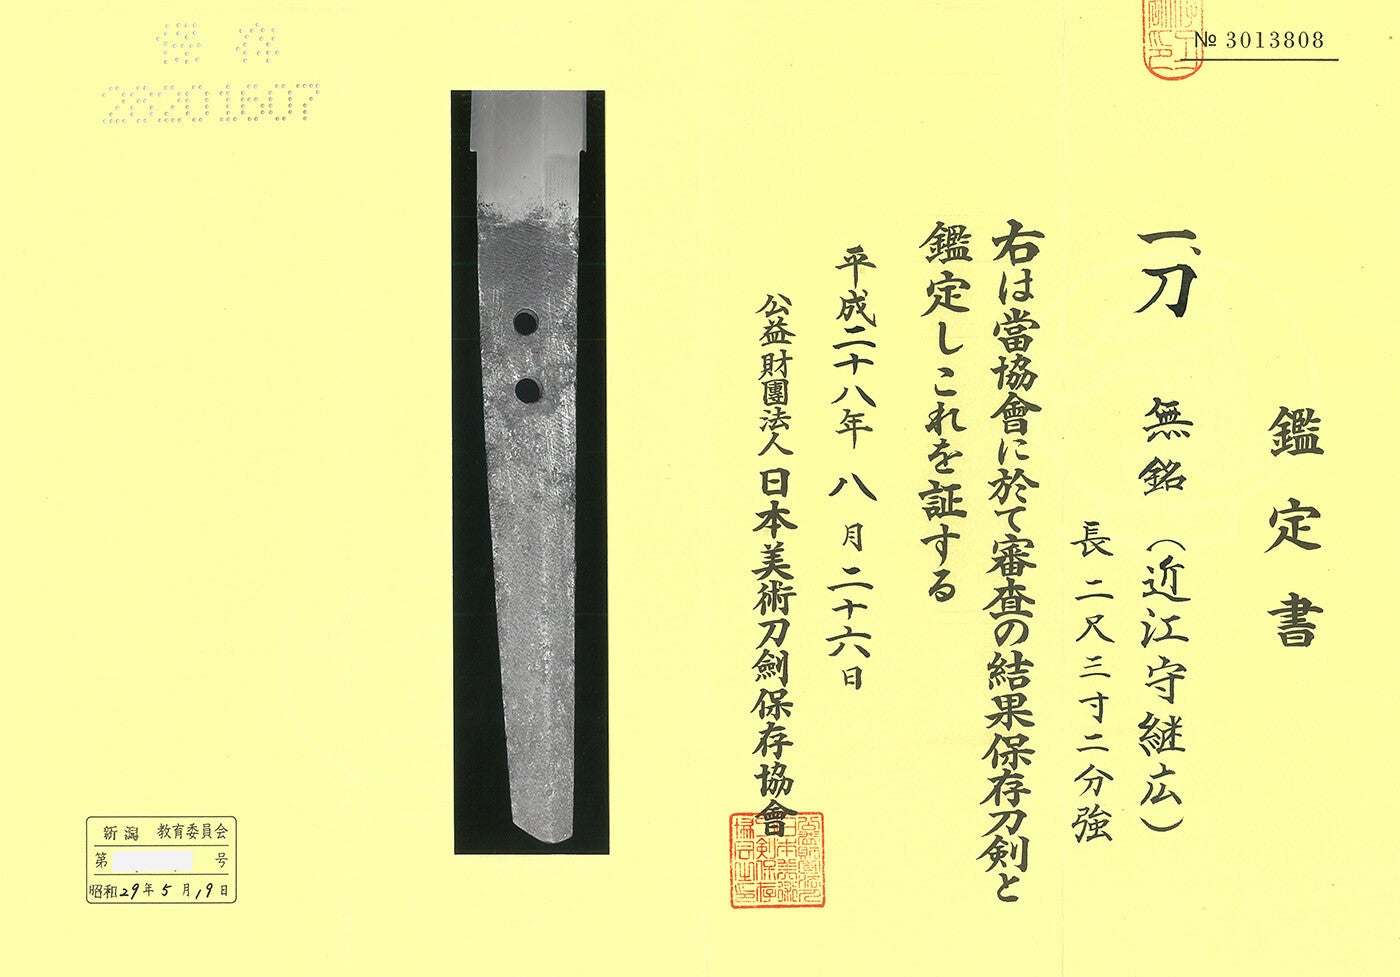 № 3013808
鑑定書
一、刀 無銘(近江守継広)
長二尺三寸二分強
右は當協會に於て審査の結果保存刀剣と
鑑定しこれを証する
平成二十八年八月二十六日
公益財團法人日本美術刀劍保存協會
保存
28201607
新潟 教育委員会
第 号
昭和29年5月19日